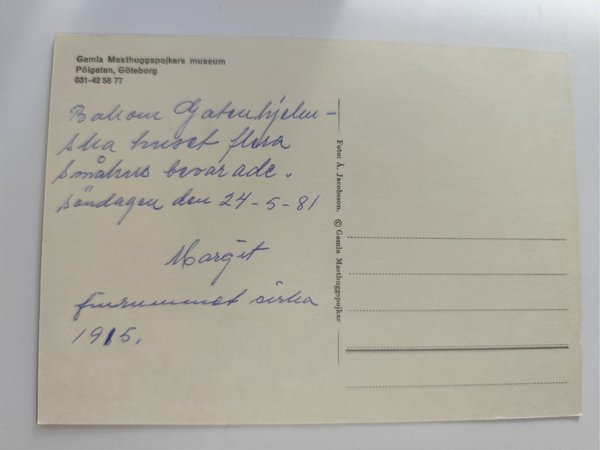 Gamla Masthuggspojkars museum
Pölgatan, Göteborg
031-42 58 77
Bakom Gatenhjelm-
ska huset flera
småhus bevarade.
söndagen den 24-5-81
Margit
finrummet cirka
1915.
Foto: Å. Jacobsson. © Gamla Masthuggspojkar